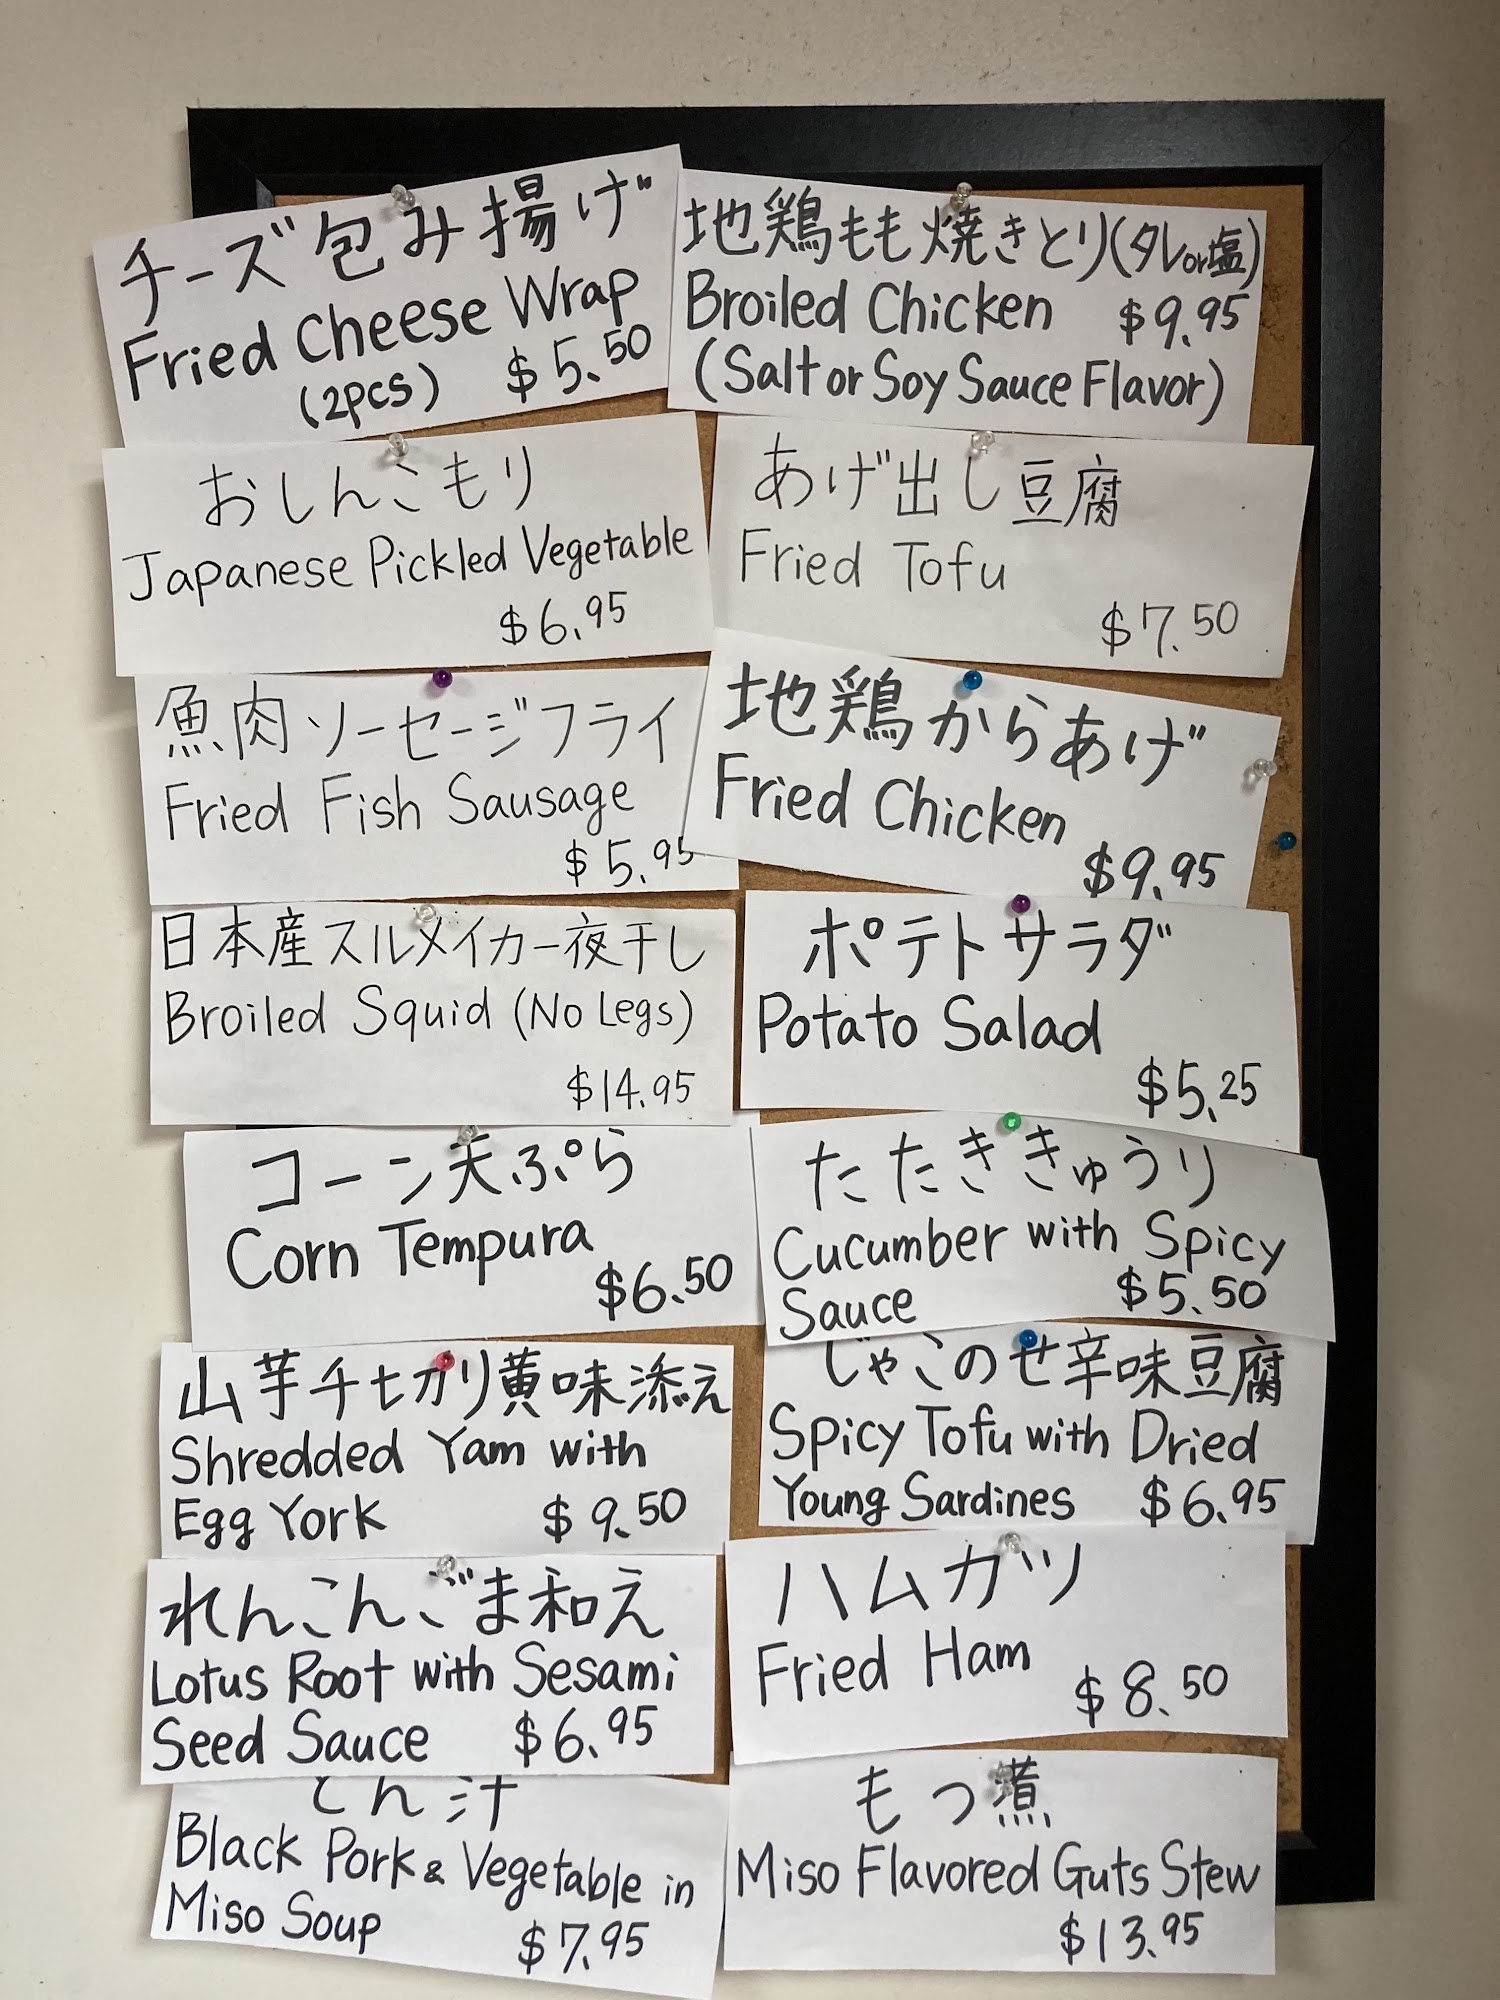 チーズ包み揚げ
Fried Cheese Wrap
(2pcs) $5.50
地鶏もも焼きとり(タレor塩)
Broiled Chicken $9.95
(Salt or Soy Sauce Flavor)
おしんこもり
Japanese Pickled Vegetable
$6.95
あげ出し豆腐
Fried Tofu
$7.50
魚肉ソーセージフライ
Fried Fish Sausage
$5.95
地鶏からあげ
Fried Chicken
$9.95
日本産スルメイカ一夜干し
Broiled Squid (No Legs)
$14.95
ポテトサラダ
Potato Salad
$5.25
コーン天ぷら
Corn Tempura
$6.50
たたききゅうり
Cucumber with Spicy
Sauce $5.50
山芋千切り黄味添え
Shredded Yam with
Egg York $9.50
じゃこのせ辛味豆腐
Spicy Tofu with Dried
Young Sardines $6.95
れんこんごま和え
Lotus Root with Sesami
Seed Sauce $6.95
ハムカツ
Fried Ham
$8.50
とん汁
Black Pork & Vegetable in
Miso Soup $7.95
もつ煮
Miso Flavored Guts Stew
$13.95